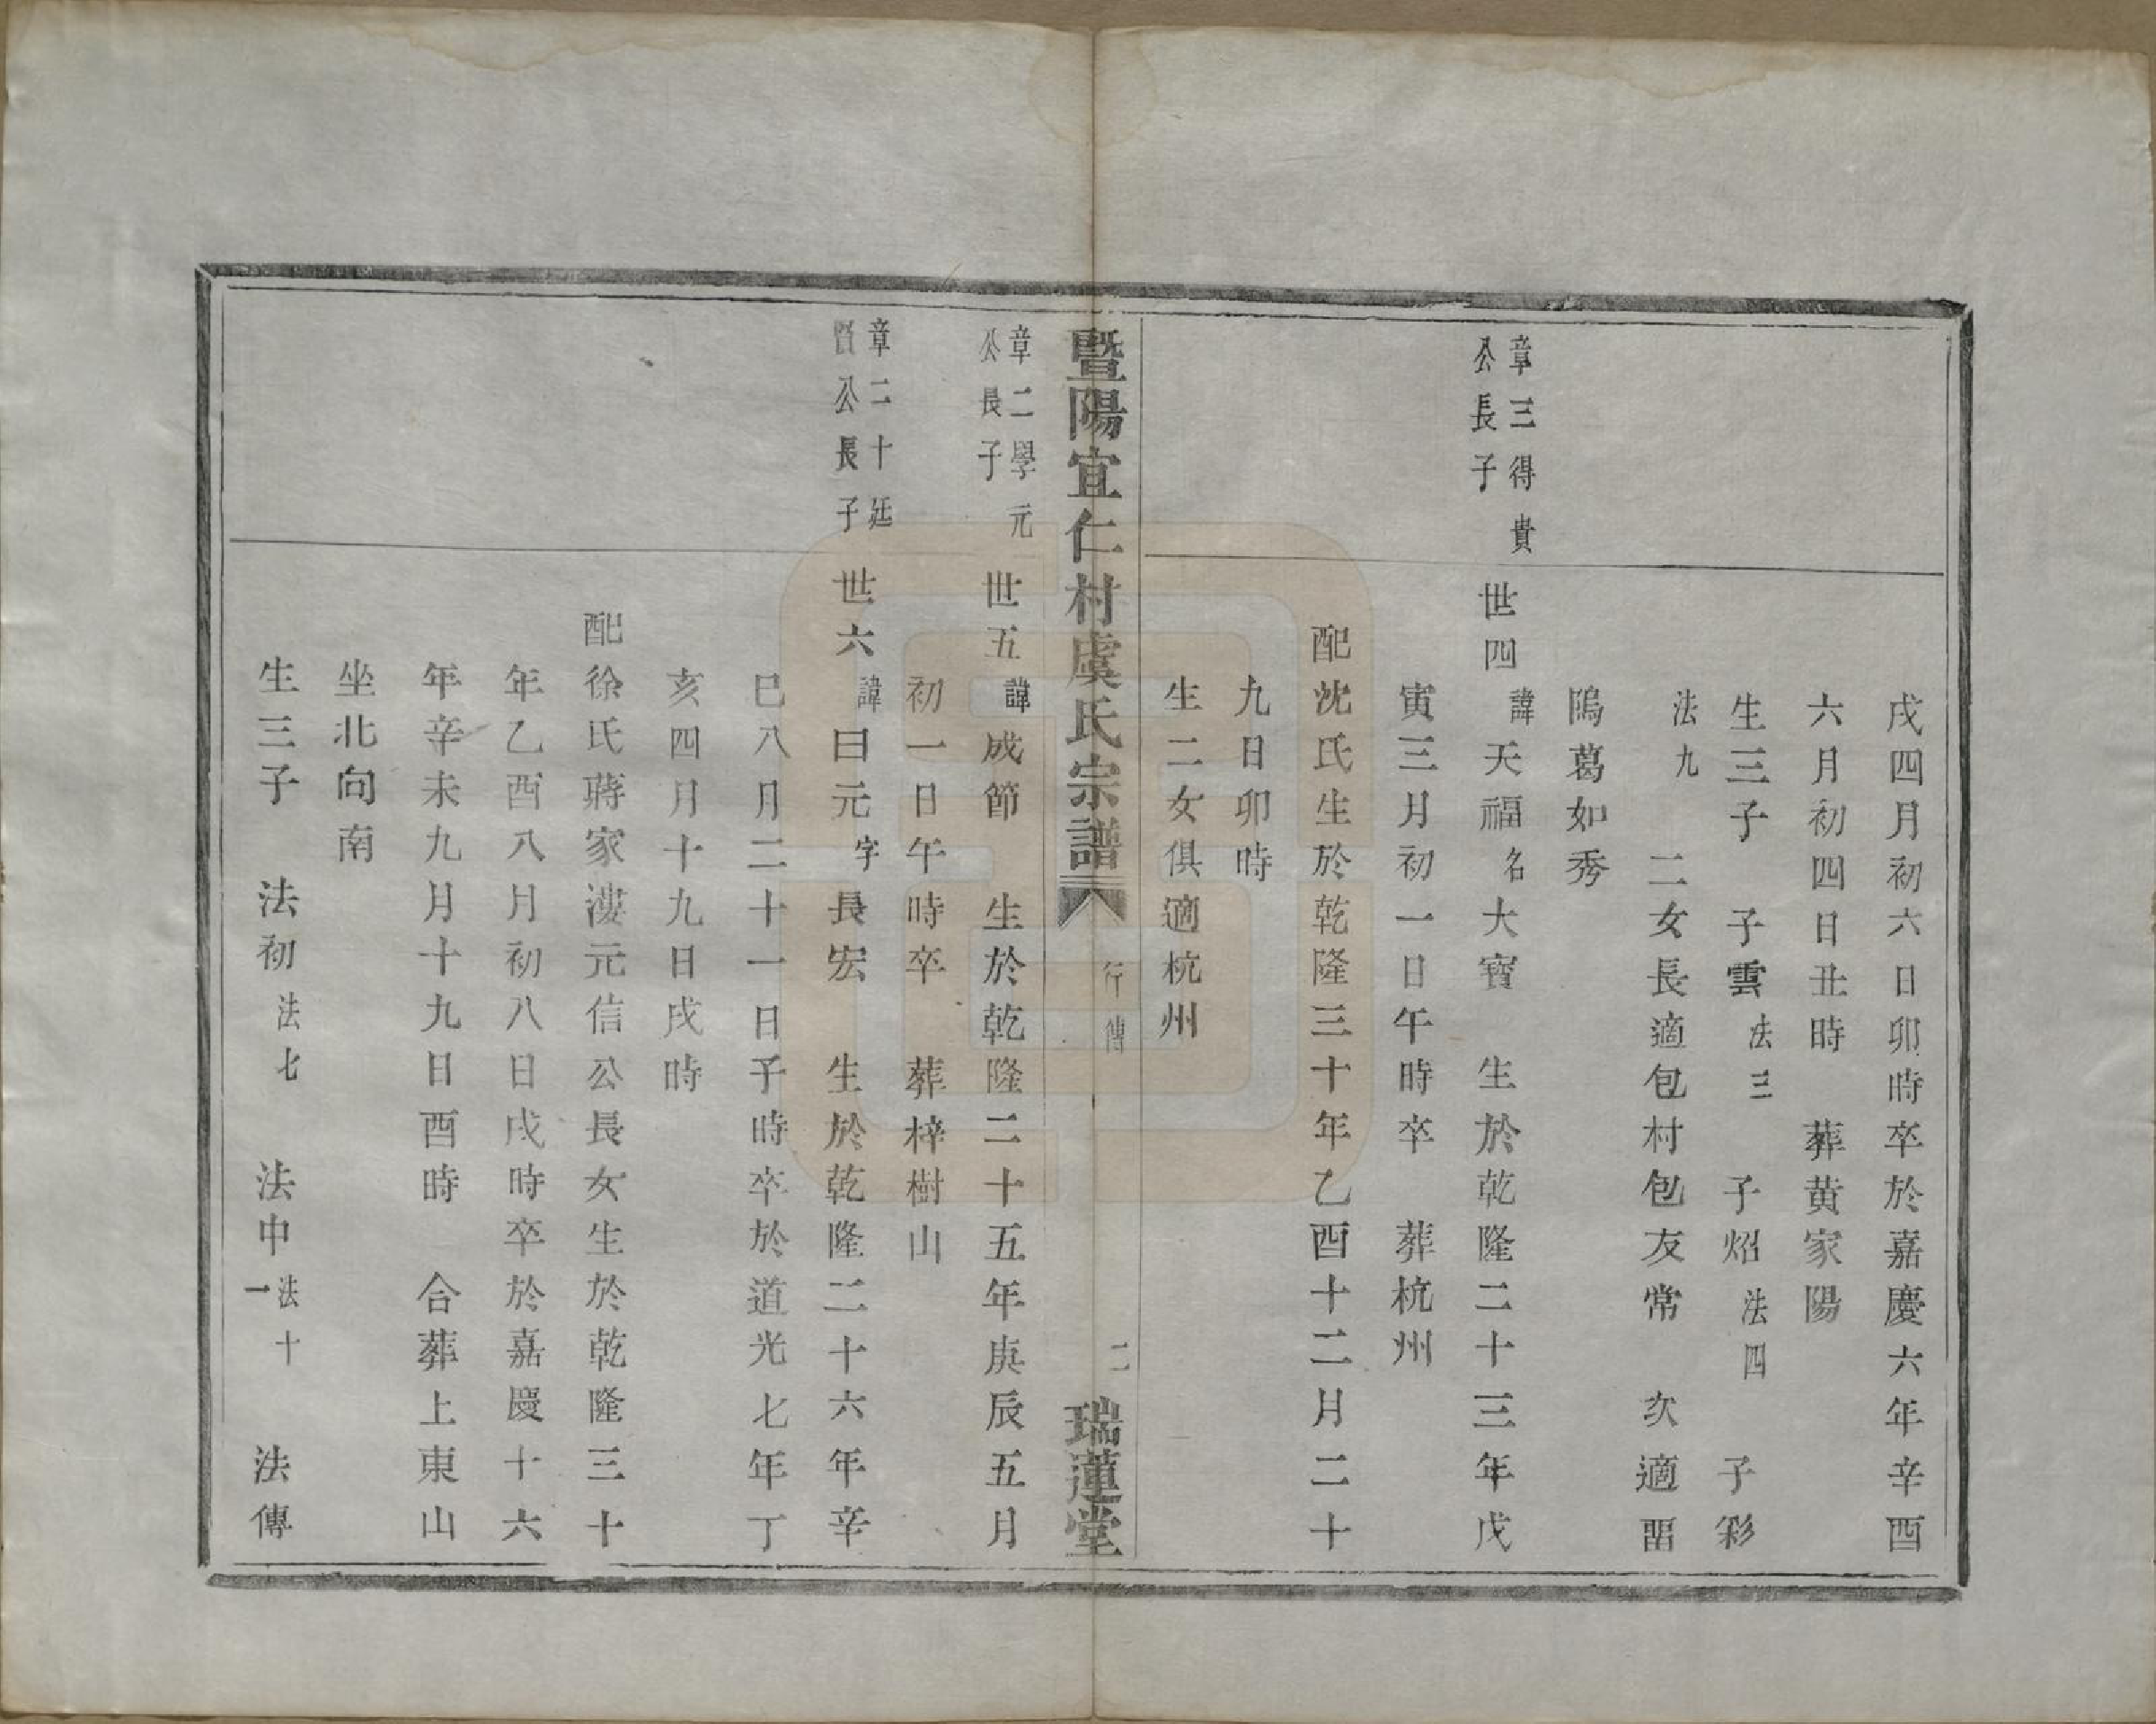 戌四月初六日卯時卒於嘉慶六年辛酉
六月初四日丑時　葬黄家陽
生三子　子雲法三　子炤法四　子彩
法九　二女長適包村包友常　次適畱
鵭葛如秀
章三得貴
公長子
世四諱天福名大寳　生於乾隆二十三年戊
寅三月初一日午時卒　葬杭州
配沈氏生於乾隆三十年乙酉十二月二十
九日卯時
生二女俱適杭州
暨陽宜仁村虞氏宗譜　行傳　二　瑞蓮堂
章二學元
公長子
世五諱成節　生於乾隆二十五年庚辰五月
初一日午時卒　葬梓樹山
章二十廷
贊公長子
世六諱曰元字長宏　生於乾隆二十六年辛
巳八月二十一日子時卒於道光七年丁
亥四月十九日戌時
配徐氏蔣家漊元信公長女生於乾隆三十
年乙酉八月初八日戌時卒於嘉慶十六
年辛未九月十九日酉時　合葬上東山
坐北向南
生三子　法初法七　法中法十一　法傳